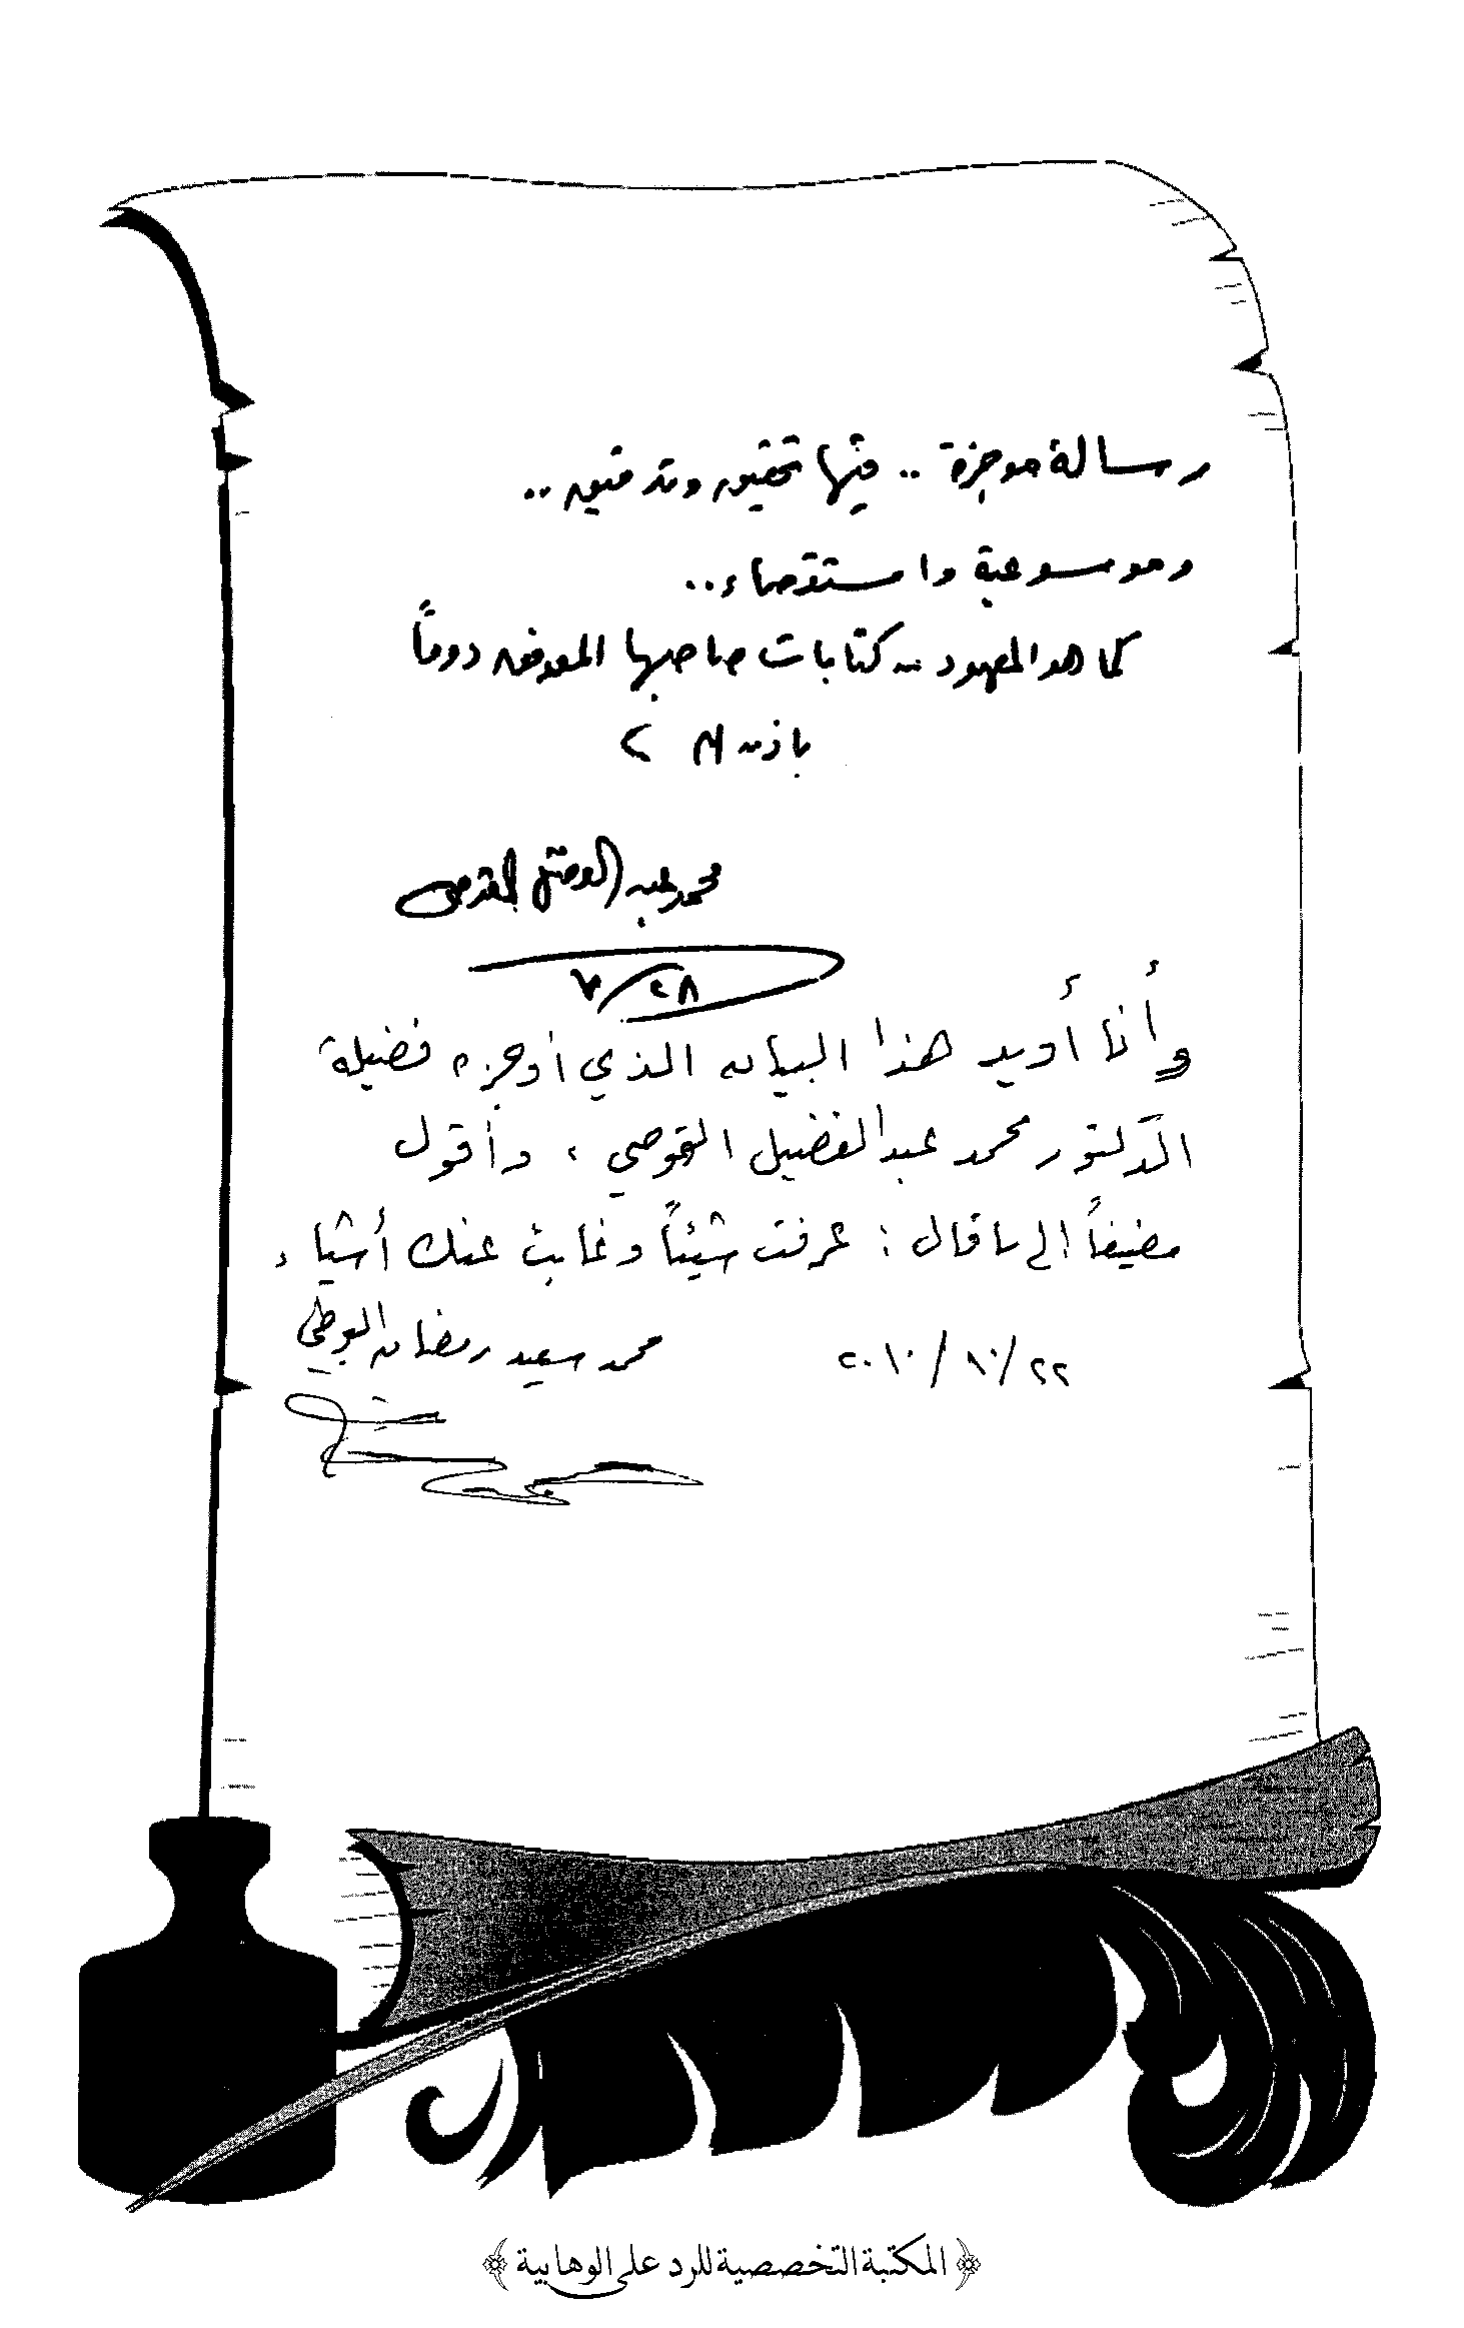 رسالة موجزة .. فيها تحقيق وتدقيق ..
وموسوعية واستقصاء ..
كما هو المعهود من كتابات صاحبها الموفق دوماً
بإذن الله
محمد عبد الفضيل القوصي
٢٨/٧
وأنا أؤيد هذا البيان الذي أوجزه فضيلة
الدكتور محمد عبد الفضيل القوصي ، وأقول
مضيفاً إلى ما قال : عرفت شيئاً وغابت عنك أشياء
٢٢/١٠/٢٠١٠ محمد سعيد رمضان البوطي
﴿المكتبة التخصصية للرد على الوهابية﴾